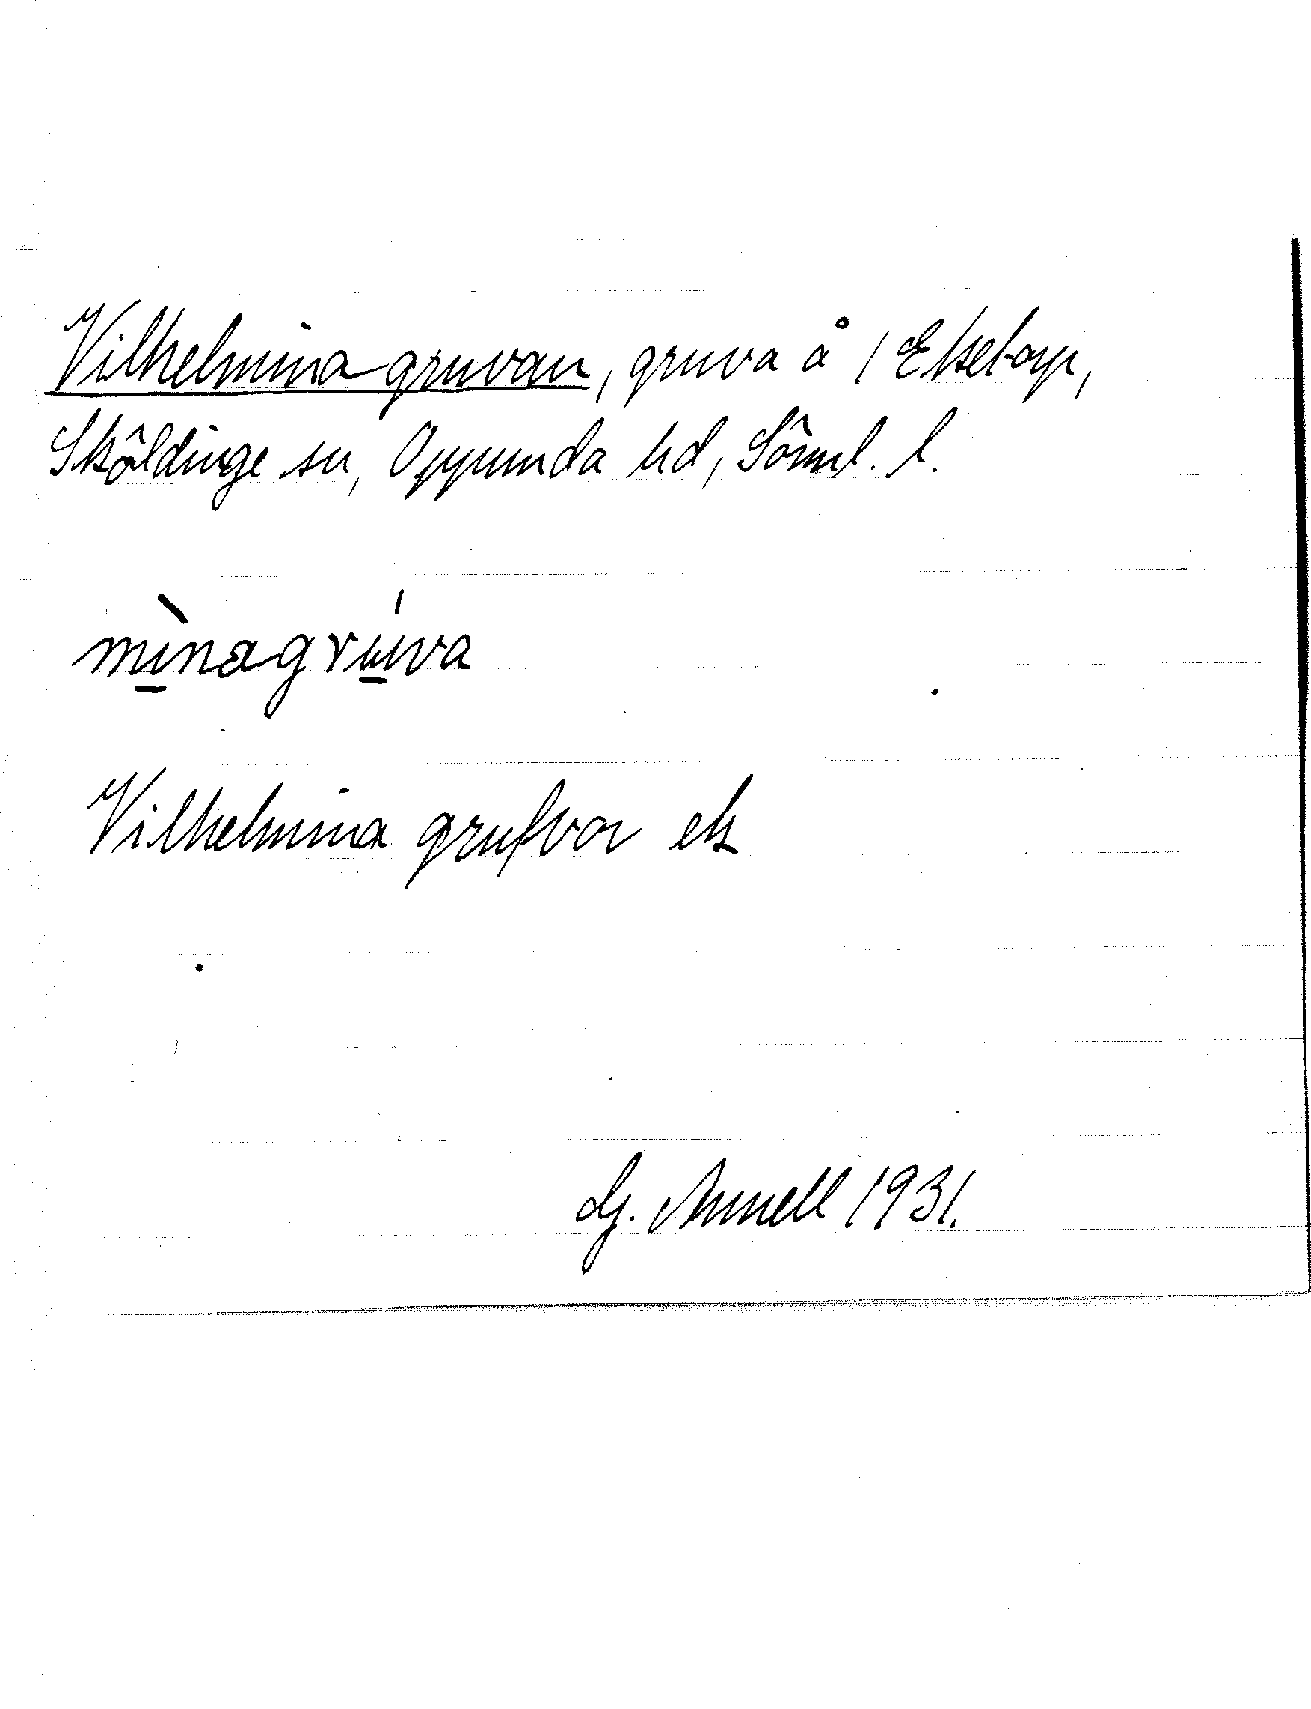 Vilhelminagruvan, gruva å 1 Eketorp,
Sköldinge sn, Oppunda hd, Söml. l.
mìnagrúva
Vilhelmina grufvor ek
G. Annell 1931.